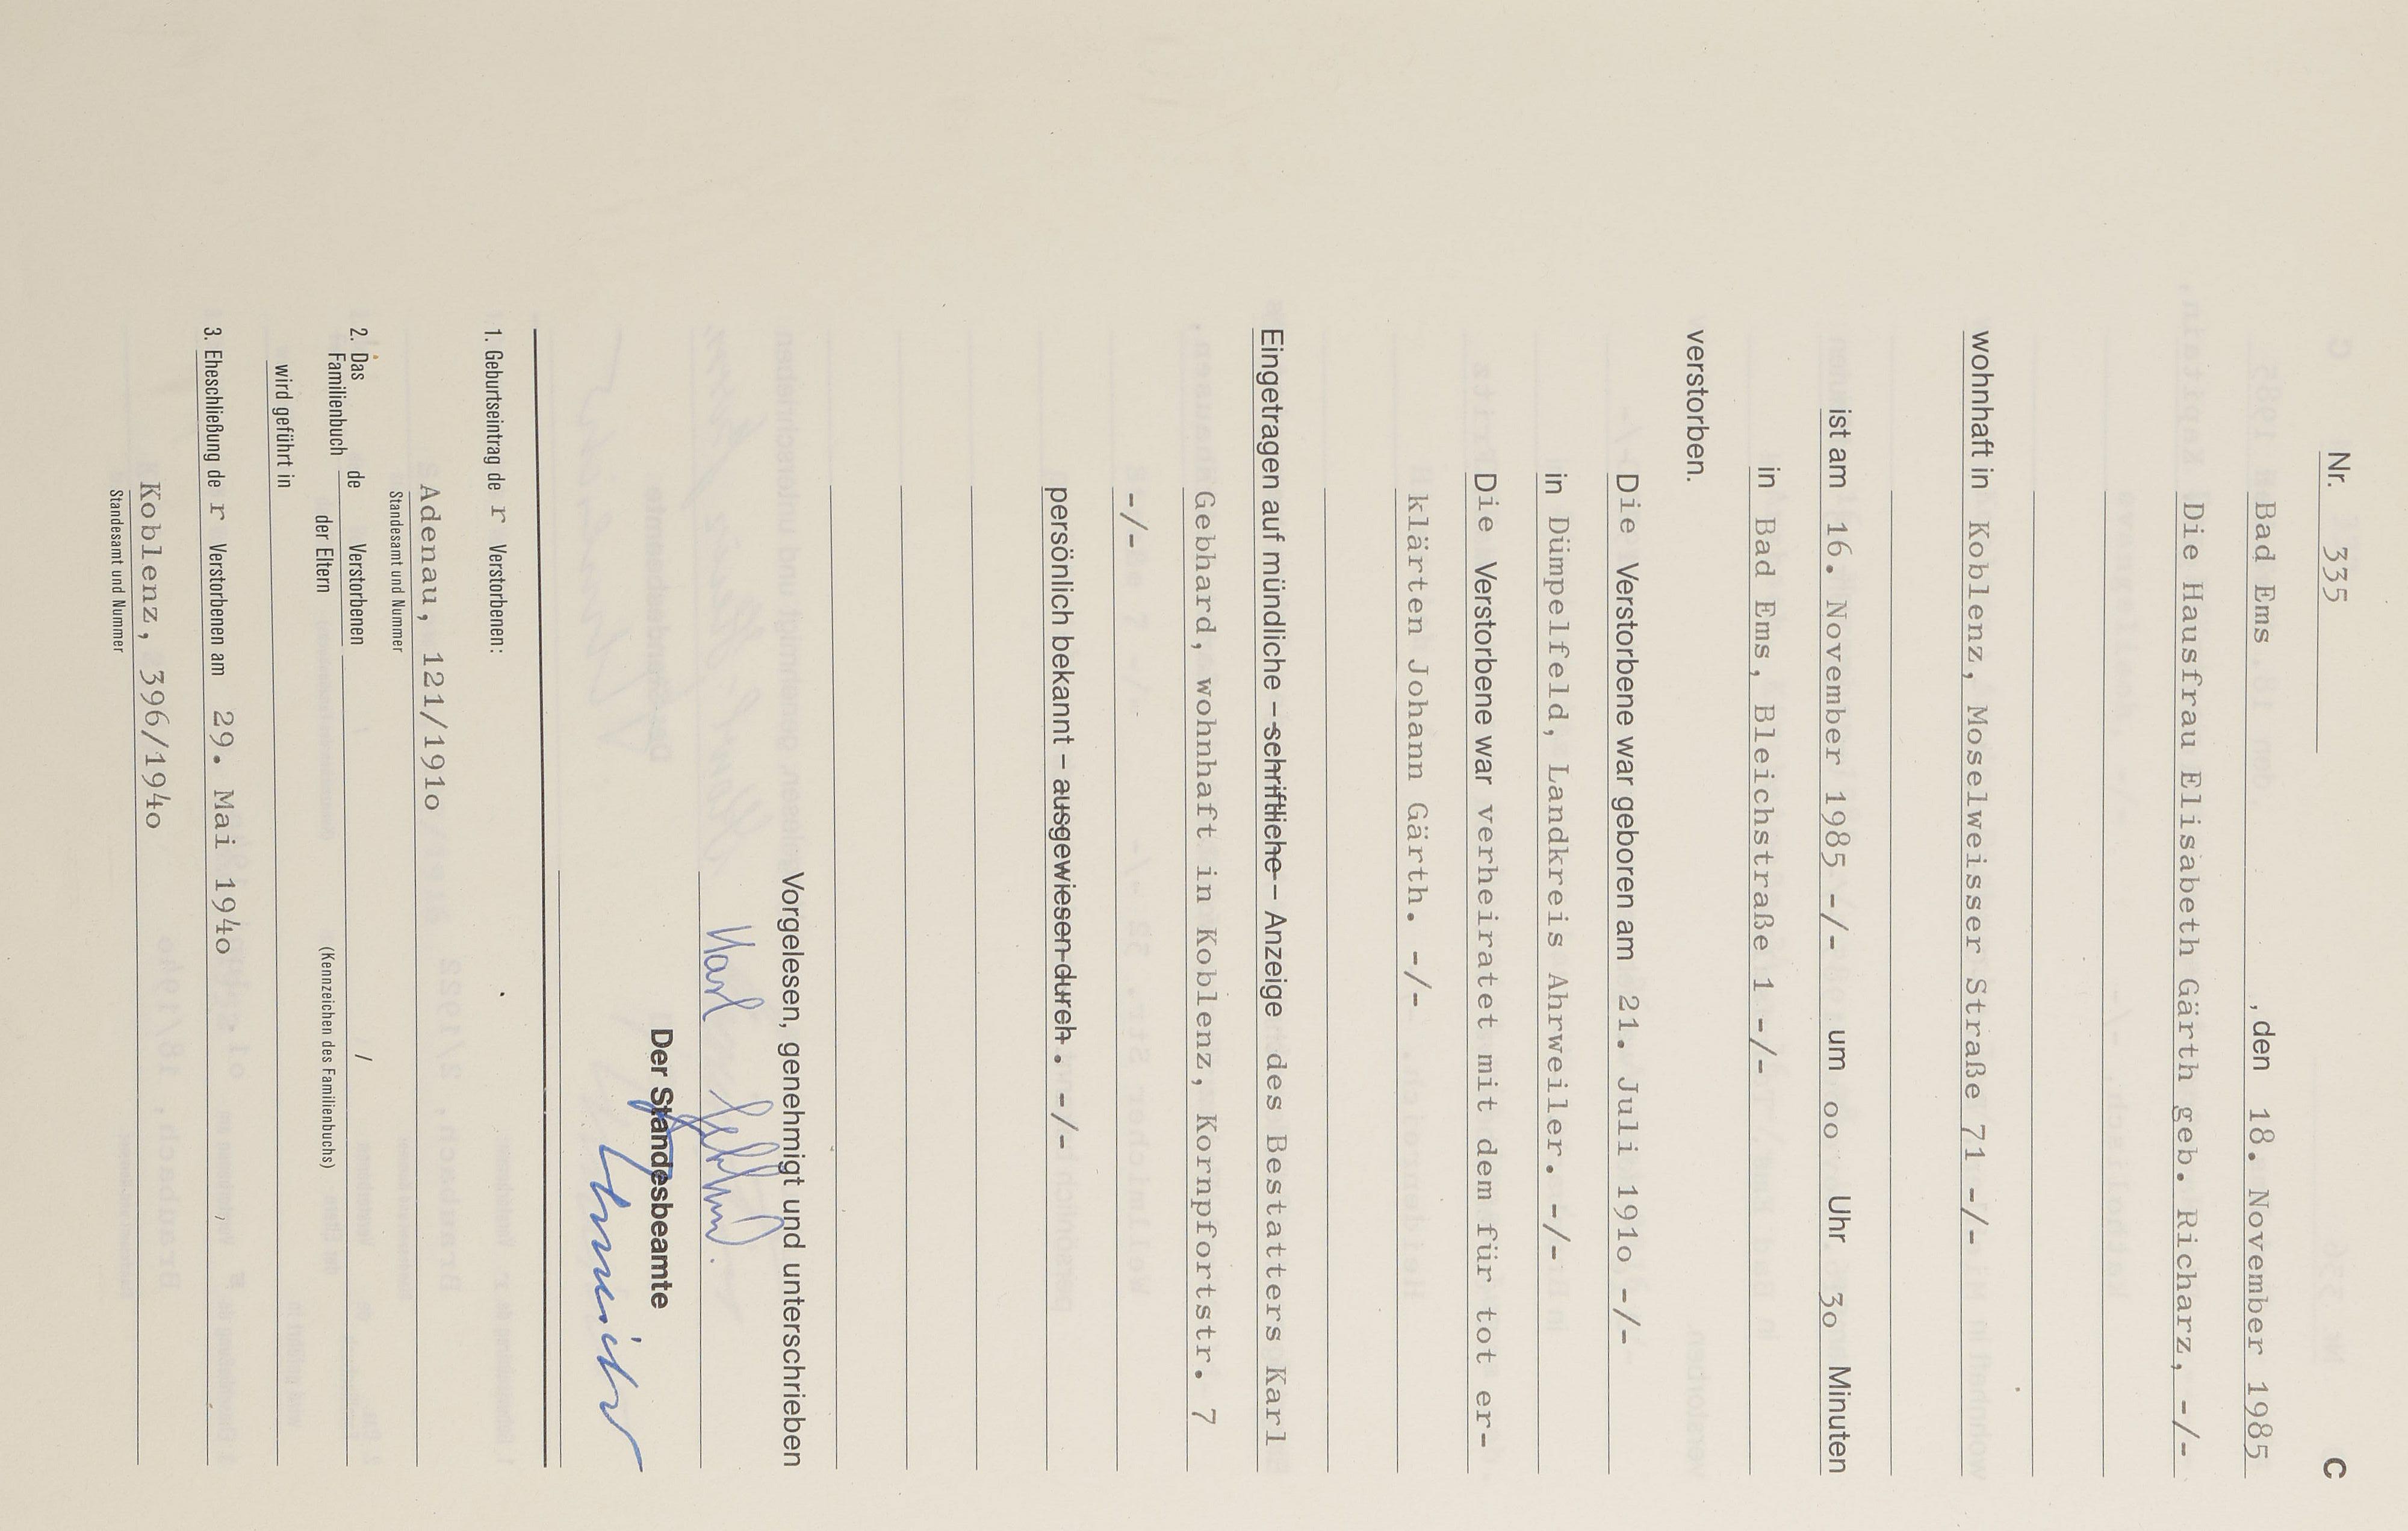 Nr. 335 C
Bad Ems, den 18. November 1985
Die Hausfrau Elisabeth Gärth geb. Richarz, -/-
wohnhaft in Koblenz, Moselweisser Straße 71 -/-
ist am 16. November 1985 -/- um oo Uhr 3o Minuten
in Bad Ems, Bleichstraße 1 -/-
verstorben.
Die Verstorbene war geboren am 21. Juli 191o -/-
in Dümpelfeld, Landkreis Ahrweiler. -/-
Die Verstorbene war verheiratet mit dem für tot er-
klärten Johann Gärth. -/-
Eingetragen auf mündliche – schriftliche – Anzeige des Bestatters Karl
Gebhard, wohnhaft in Koblenz, Kornpfortstr. 7
-/-
persönlich bekannt – ausgewiesen durch. -/-
Vorgelesen, genehmigt und unterschrieben
Karl Gebhard.
Der Standesbeamte
1. Geburtseintrag de r Verstorbenen:
Adenau, 121/191o
Standesamt und Nummer
2. Das Familienbuch de Verstorbenen /
der Eltern (Kennzeichen des Familienbuchs)
wird geführt in
3. Eheschließung de r Verstorbenen am 29. Mai 194o
Koblenz, 396/194o
Standesamt und Nummer